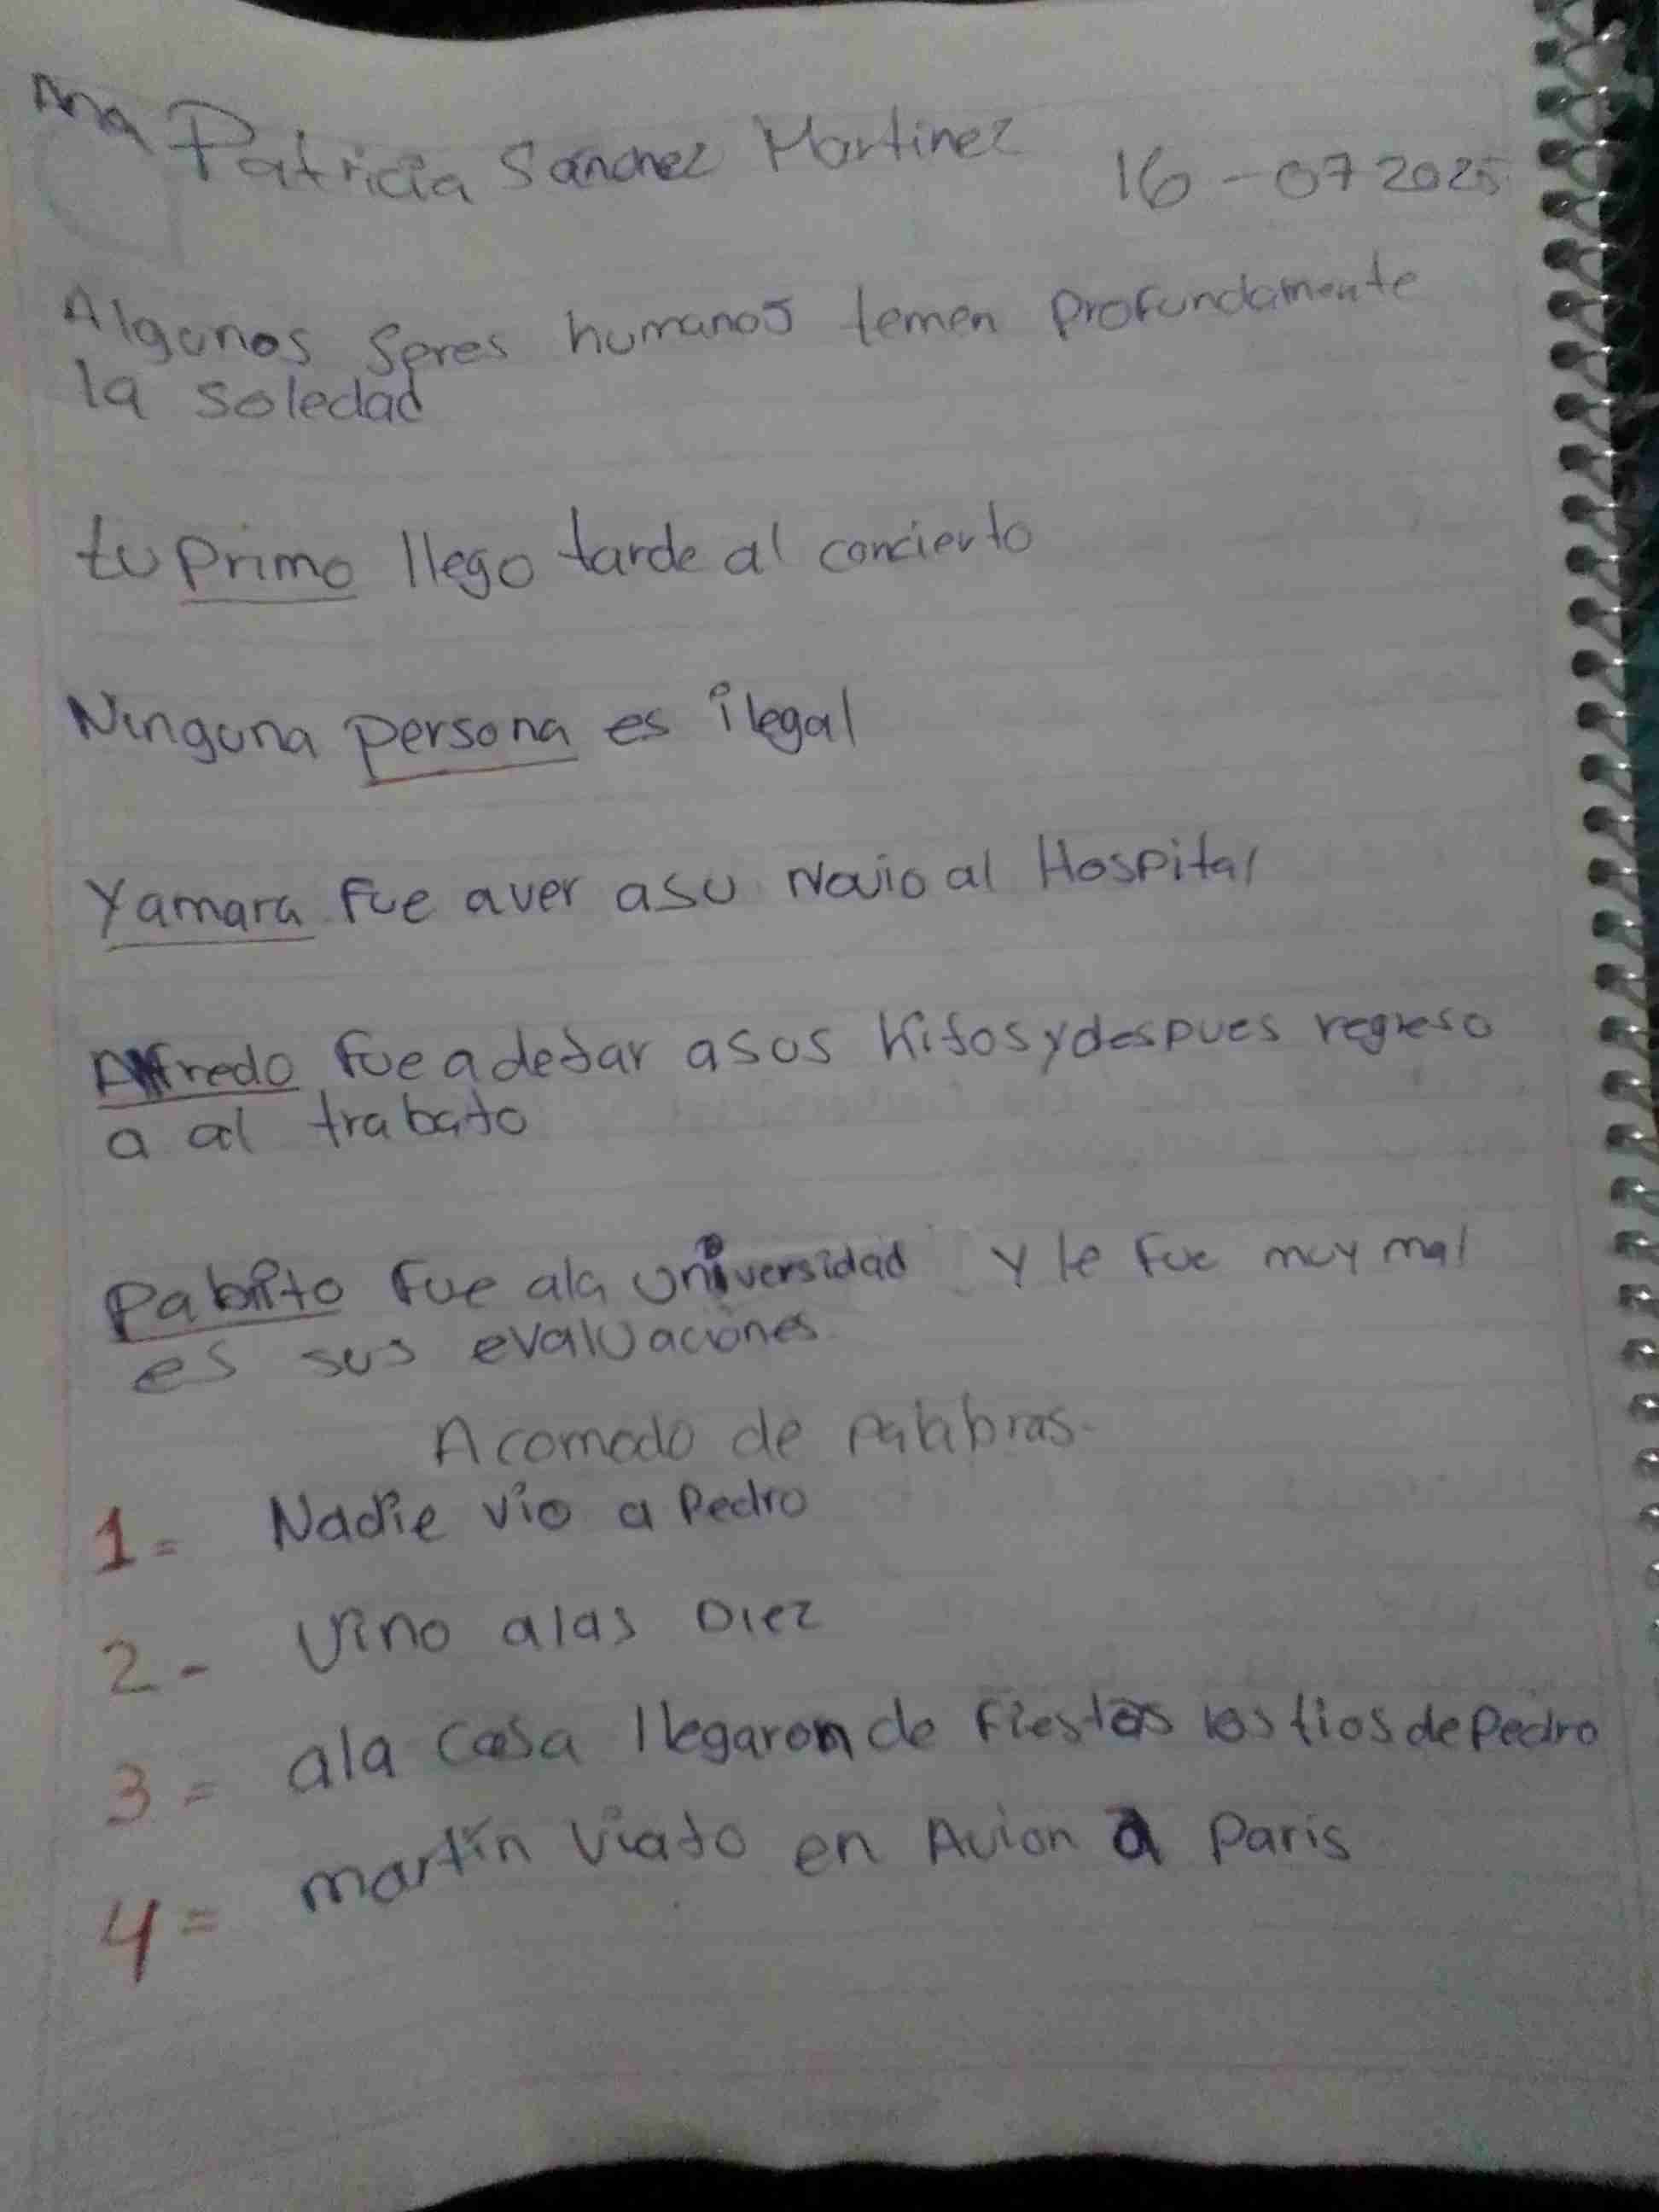 Ana Patricia Sanchez Martinez 16-07 2025
Algunos seres humanos temen profundamente
la soledad
tu primo llego tarde al concierto
Ninguna persona es ilegal
Yamara fue aver asu Novio al Hospital
Alfredo fue a dejar asus hijos y despues regreso
a al trabajo
Pablito fue ala universidad y le fue muy mal
es sus evaluaciones
Acomodo de palabras.
1= Nadie vio a Pedro
2- Vino alas Diez
3= ala casa llegaron de fiestas los tios de Pedro
4= martin viajo en Avion a Paris